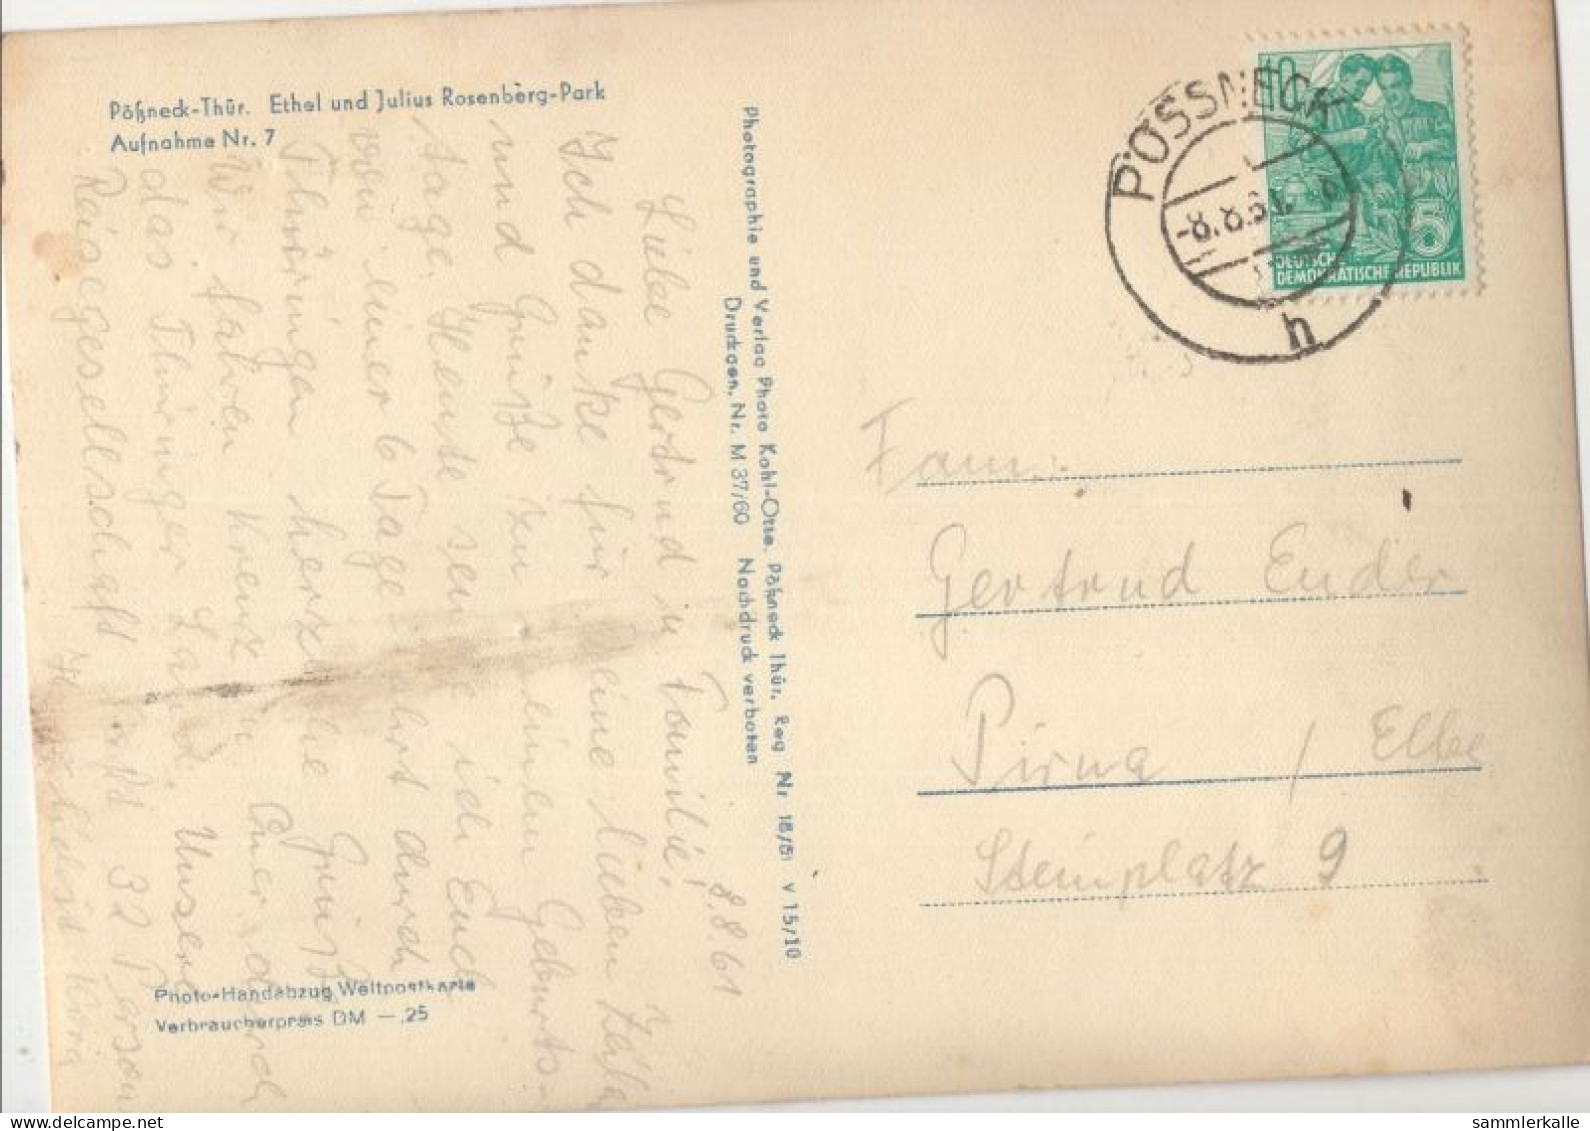 Pößneck-Thür. Ethel und Julius Rosenberg-Park
Aufnahme Nr. 7
8.8.61
Liebe Gertrud u Familie!
Ich danke für Deine lieben
und Grüße zu meinem Geburts-
tage. Heute sende ich Euch
von einer 6 Tage Fahrt durch
Thüringen herzliche Grüße
Wir fahren Kreuz u Quer durch
das Thüringer Land. Unsere
Reisegesellschaft 32 Person
Photo-Handabzug Weltpostkarte
Verbraucherpreis DM —.25
Photographie und Verlag Photo Kohl-Otte, Pößneck Thür. Reg Nr 18/61 v 15/10
Druckgen. Nr. M 37/60 Nachdruck verboten
PÖSSNECK
-8.8.61.
h
10
5
DEUTSCHE
DEMOKRATISCHE REPUBLIK
Fam.
Gertrud Ender
Pirna / Elbe
Steinplatz 9
sammlerkalle
www.delcampe.net